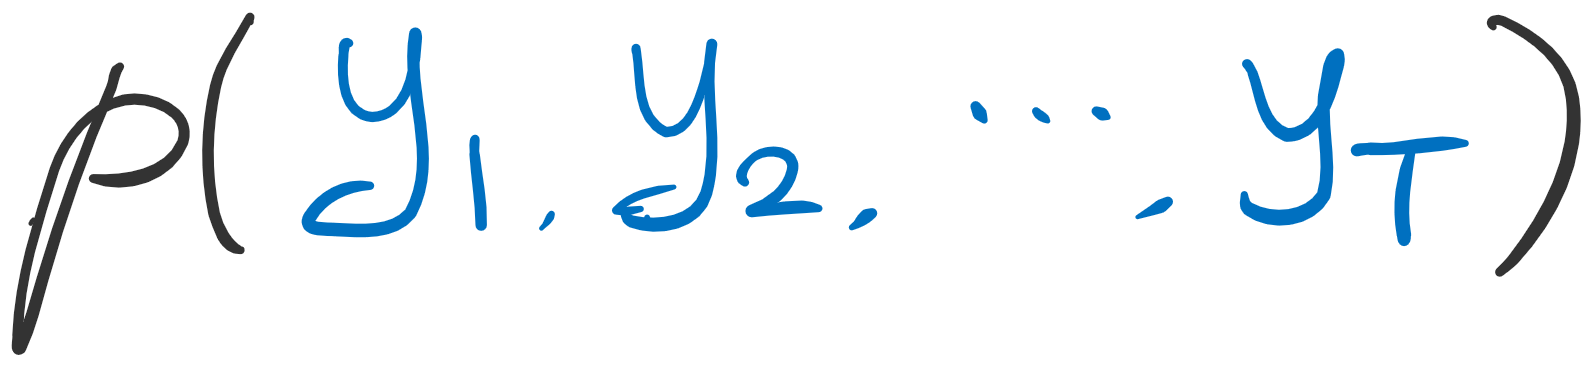 p(y₁, y₂, ..., y_T)